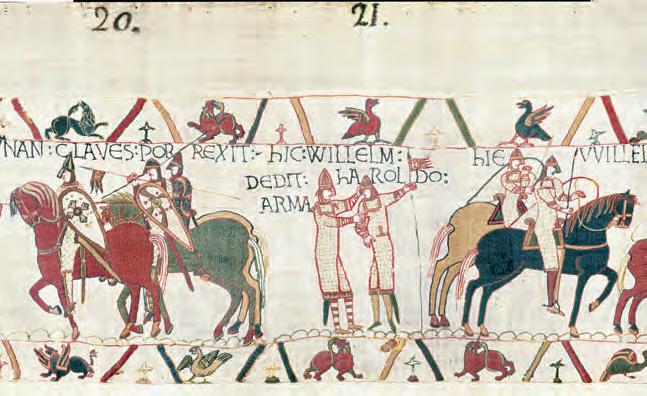 20. 21.
NAN : CLAVES : POR REXIT :- hIC : WILLELM : hIE
DEDIT : hAROLDO :
ARMA